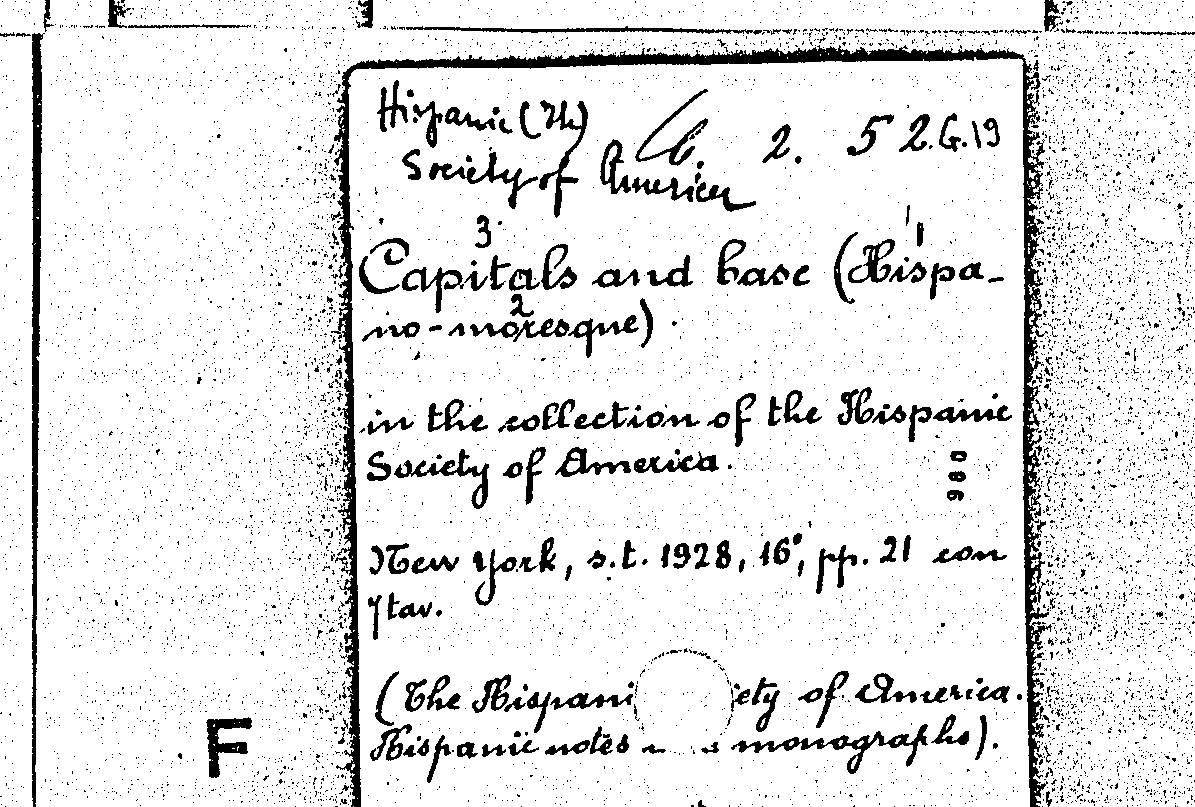 Hispanic (The)
Society of America
6. 2. 52.G.19
3 1
Capitals and base (Hispa-
2
no-moresque).
in the collection of the Hispanic
Society of America.
980
New York, s.t. 1928, 16°, pp. 21 con
7 tav.
(The Hispani ety of America.
Hispanic notes monographs).
F